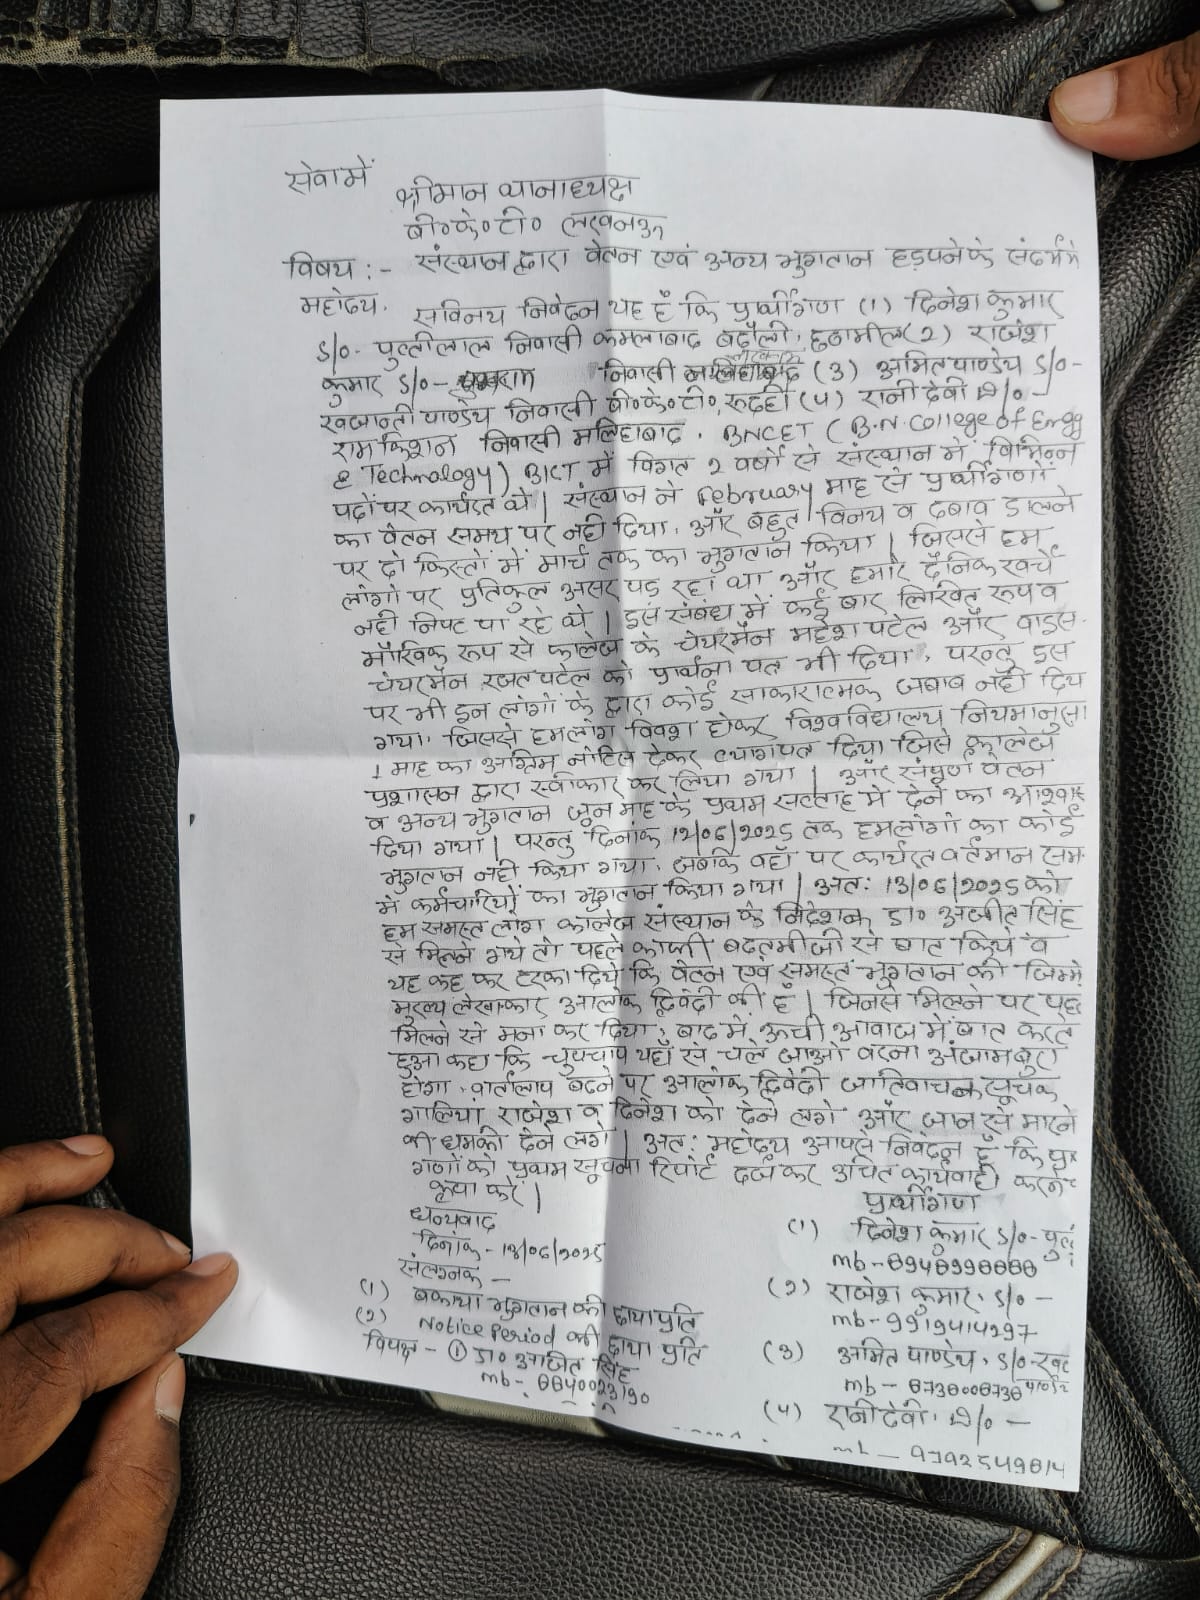 सेवामें
श्रीमान थानाध्यक्ष
बी०के०टी० लखनऊ
विषय :- संस्थान द्वारा वेतन एवं अन्य भुगतान हड़पने के संदर्भ में
महोदय,
सविनय निवेदन यह है कि प्रार्थीगण (1) दिनेश कुमार
S/o- पुत्तीलाल निवासी कमलाबाद बढ़ौली, (2) राजेश
कुमार S/o- निवासी (3) अमित पाण्डेय S/o-
पाण्डेय निवासी बी०के०टी०, रूदही (4) रानी देवी
रामकिशन निवासी मलिहाबाद, BNCET (B.N. College of Engg
& Technology) BKT में विगत 2 वर्षों से संस्थान में विभिन्न
पदों पर कार्यरत थे | संस्थान ने February माह से प्रार्थीगणों
का वेतन समय पर नहीं दिया, और बहुत विनय व दबाव डालने
पर दो किस्तों में मार्च तक का भुगतान किया | जिससे हम
लोगों पर प्रतिकुल असर पड़ रहा था और हमारे दैनिक खर्चे
नहीं निपट पा रहे थे | इस संबंध में कई बार लिखित रूप व
मौखिक रूप से कालेज के चेयरमैन महेश पटेल और वाइस
चेयरमैन रजत पटेल को प्रार्थना पत्र भी दिया, परन्तु इस
पर भी इन लोगों के द्वारा कोई साकारात्मक जबाब नहीं दिय
गया, जिससे हमलोग विवश होकर विश्वविद्यालय नियमानुसा
1 माह का अग्रिम नोटिस देकर त्यागपत्र दिया जिसे कालेज
प्रशासन द्वारा स्वीकार कर लिया गया | और संपूर्ण वेतन
व अन्य भुगतान जून माह के प्रथम सप्ताह में देने का
दिया गया | परन्तु दिनांक 12/06/2025 तक हमलोगों का कोई
भुगतान नहीं किया गया, जबकि वहाँ पर कार्यरत वर्तमान सम
में कर्मचारियों का भुगतान किया गया | अत: 13/06/2025 को
हम समस्त लोग कॉलेज संस्थान के निदेशक डा० अजीत सिंह
से मिलने गये तो पहले काफी बदतमीजी से बात किये व
यह कह कर टरका दिये कि वेतन एवं समस्त भुगतान की जिम्मे
मुख्य लेखाकार आलोक द्विवेदी की है | जिनसे मिलने पर पहले
मिलने से मना कर दिया, बाद में ऊची आवाज में बात करत
हुआ कहा कि चुपचाप यहाँ से चले जाओ वरना अंजाम बुरा
होगा, वार्तालाप बढ़ने पर आलोक द्विवेदी जातिवाचक सूचक
गालियां राजेश व दिनेश को देने लगे और जान से मारने
की धमकी देने लगे | अत: महोदय आपसे निवेदन है कि
गणों को प्रथम सूचना रिपोर्ट दर्ज कर उचित कार्यवाही करने
कृपा करें |
प्रार्थीगण
धन्यवाद
दिनांक - 13/06/2025
संलग्नक -
(1) बकाया भुगतान की छायाप्रति
(2) Notice Period की छाया प्रति
विपक्ष - ① डा० अजित सिंह
mb-
(1) दिनेश कुमार S/o-
mb-
(2) राजेश कुमार, S/o -
mb- 9919414297
(3) अमित पाण्डेय, S/o-
mb-
(4) रानी देवी,
mb-